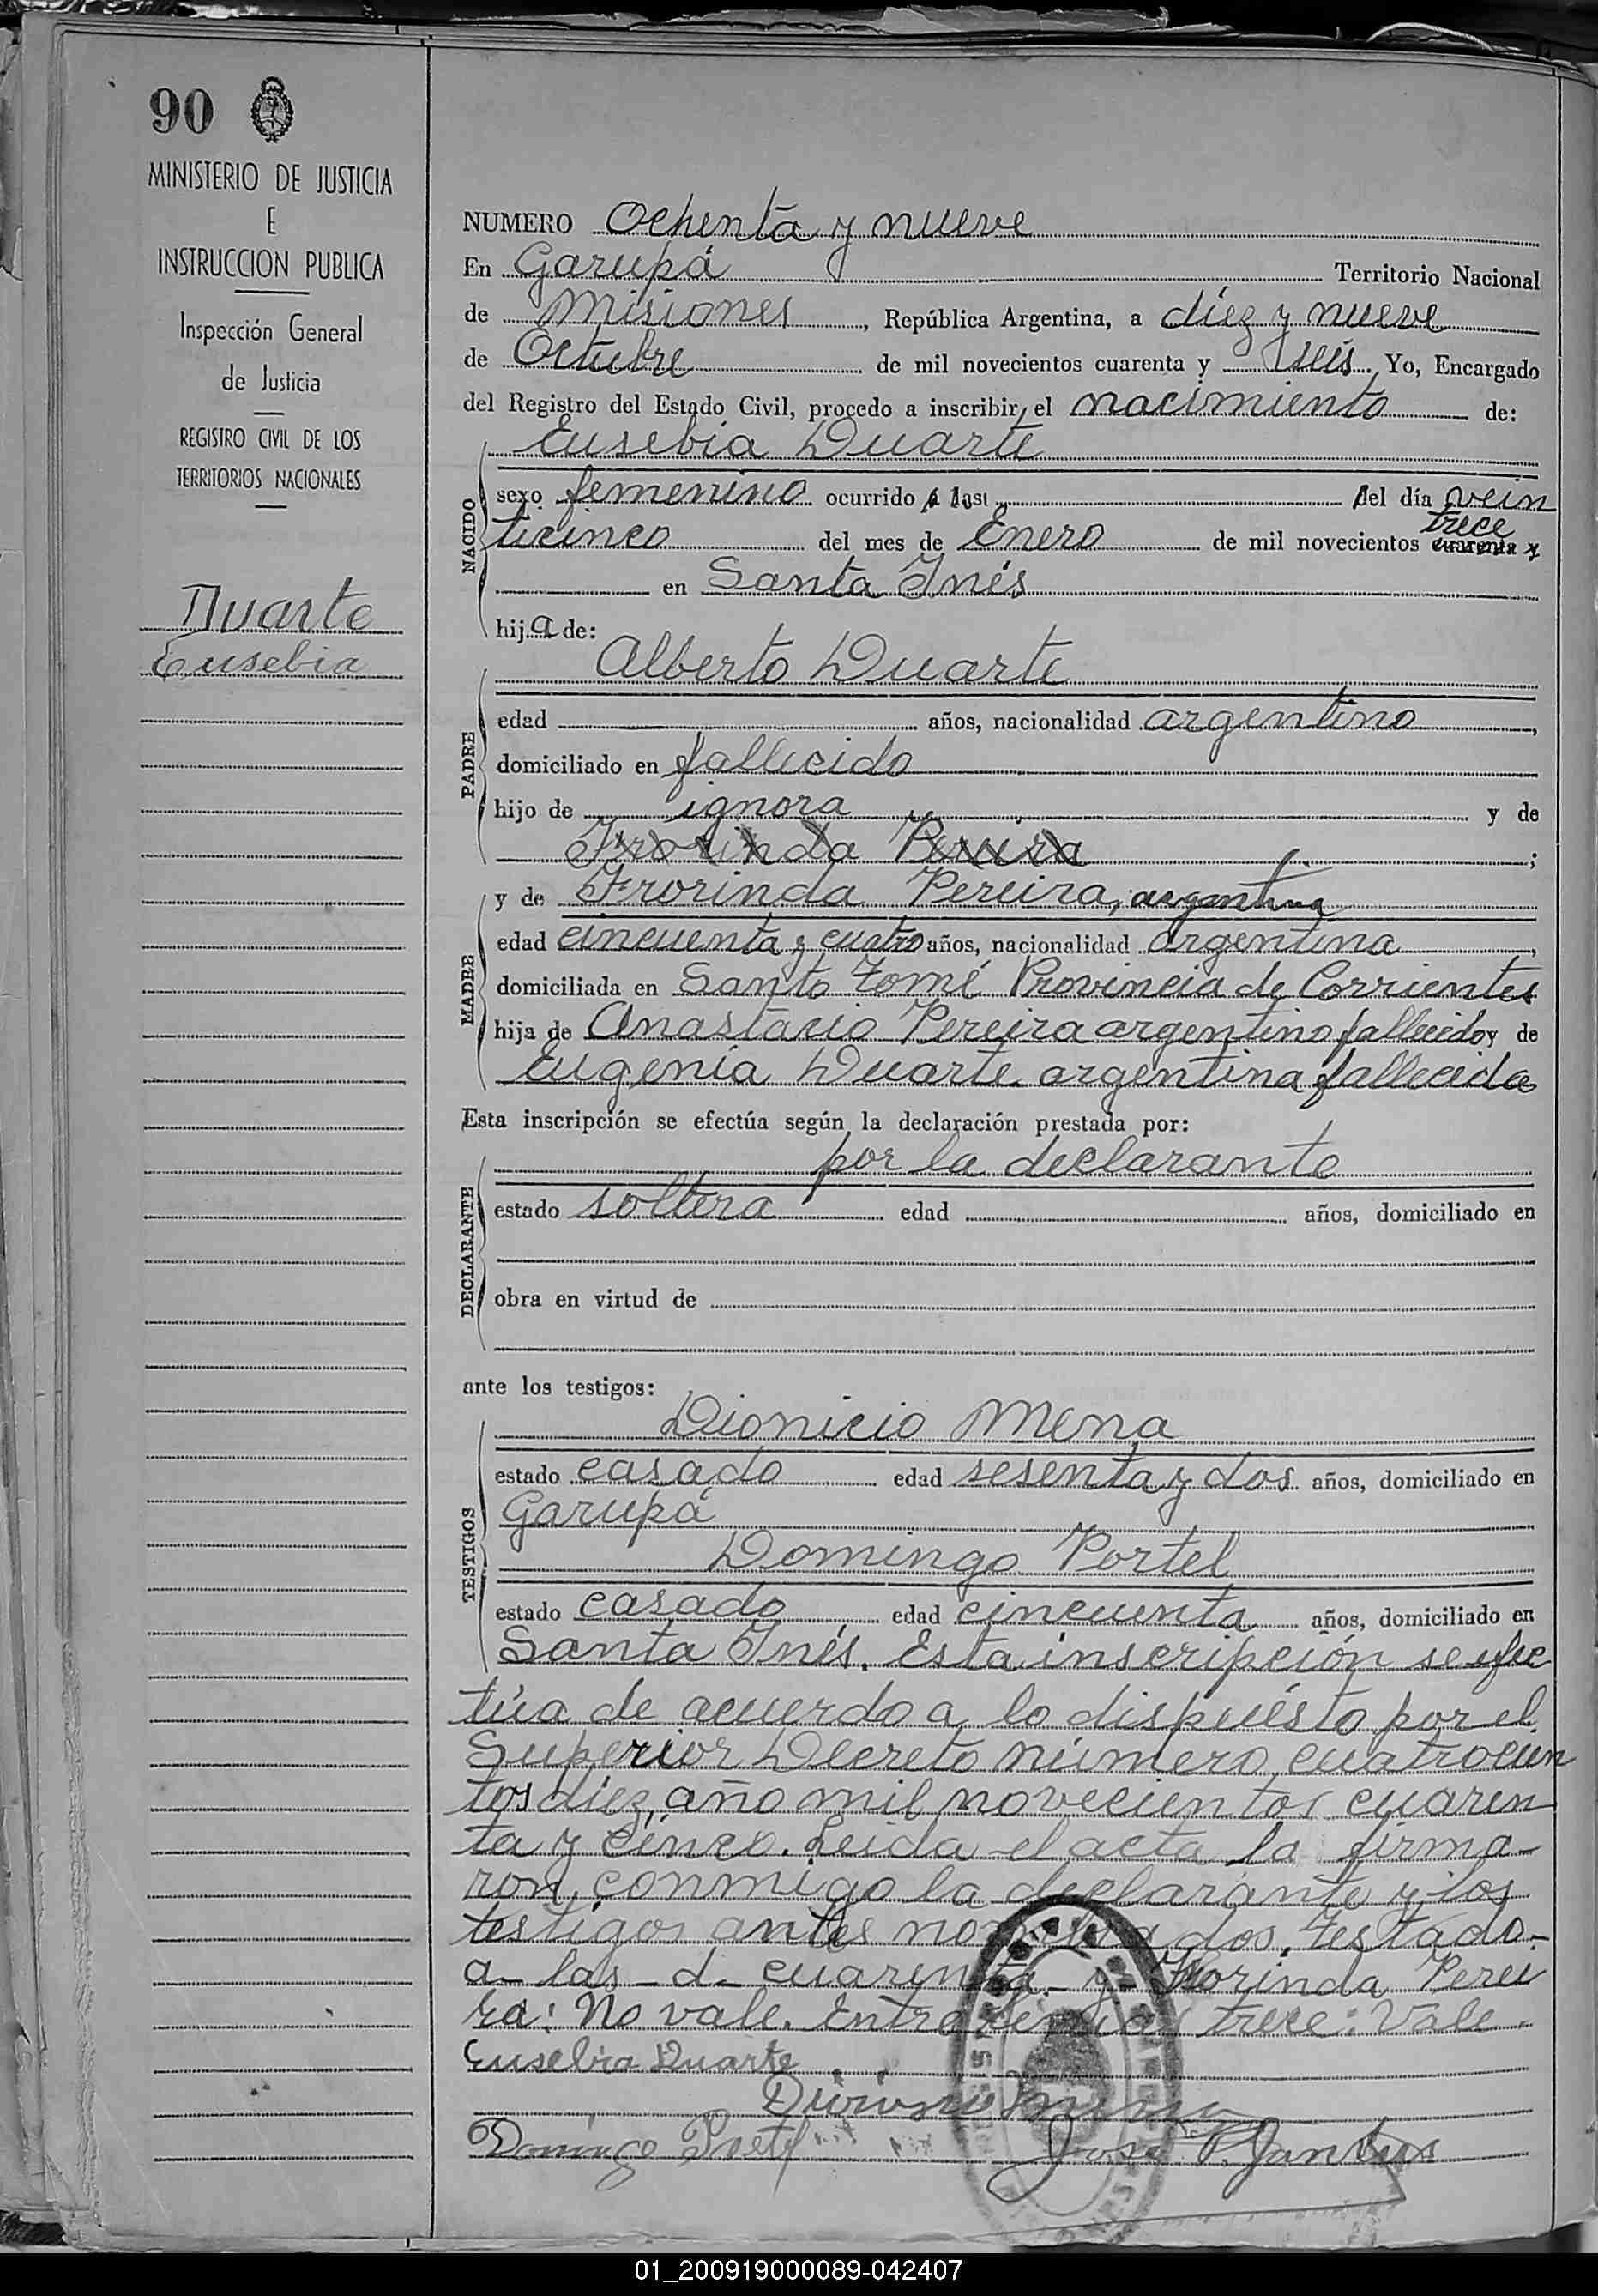 90
MINISTERIO DE JUSTICIA
E
INSTRUCCION PUBLICA
Inspección General
de Justicia
REGISTRO CIVIL DE LOS
TERRITORIOS NACIONALES
Duarte
Eusebia
NUMERO Ochenta y nueve
En Garupá Territorio Nacional
de Misiones, República Argentina, a diez y nueve
de Octubre de mil novecientos cuarenta y seis. Yo, Encargado
del Registro del Estado Civil, procedo a inscribir el nacimiento de:
Eusebia Duarte
NACIDO
sexo femenino ocurrido a las del día vein
trece
ticinco del mes de Enero de mil novecientos cuarenta y
en Santa Inés
hija de:
Alberto Duarte
PADRE
edad años, nacionalidad argentino,
domiciliado en fallecido
hijo de ignora y de
Frorinda Pereira;
y de Frorinda Pereira, argentina
MADRE
edad cincuenta y cuatro años, nacionalidad argentina,
domiciliada en Santo Tomé Provincia de Corrientes
hija de Anastacio Pereira argentino fallecido y de
Eugenia Duarte argentina fallecida
Esta inscripción se efectúa según la declaración prestada por:
por la declarante
DECLARANTE
estado soltera edad años, domiciliado en
obra en virtud de
ante los testigos:
Dionicio Mena
TESTIGOS
estado casado edad sesenta y dos años, domiciliado en
Garupá
Domingo Portel
estado casado edad cincuenta años, domiciliado en
Santa Inés. Esta inscripción se efec
túa de acuerdo a lo dispuésto por el
Superior Decreto número cuatrocien
tos diez, año mil novecientos cuaren
ta y cinco. Leida el acta la firma-
ron, conmigo la declarante y los
testigos antes nombrados. Testado-
a- las- d- cuarenta- y- Frorinda Perei
ra: No vale. Entrelineas trece: Vale.
Eusebia Duarte
Domingo Portel
José P.
01_200919000089-042407